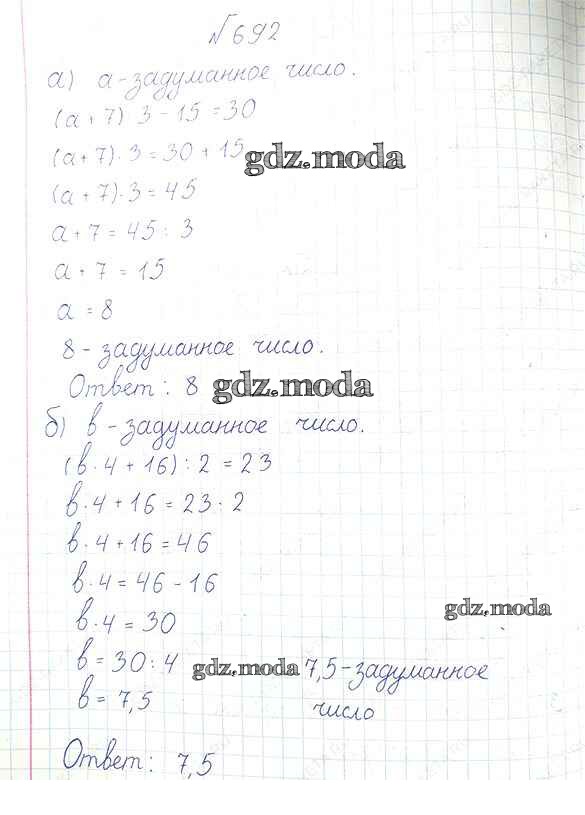 №692
а) а-задуманное число.
(а + 7) 3 - 15 = 30
(а+7)·3 = 30 + 15
gdz.moda
(а + 7)·3 = 45
а + 7 = 45 : 3
а + 7 = 15
а = 8
8 - задуманное число.
Ответ: 8
gdz.moda
б) в - задуманное число.
(в·4 + 16) : 2 = 23
в·4 + 16 = 23·2
в·4+16 = 46
в·4 = 46 - 16
gdz.moda
в·4 = 30
в = 30 : 4
gdz.moda
7,5-задуманное
в = 7,5
число
Ответ: 7,5